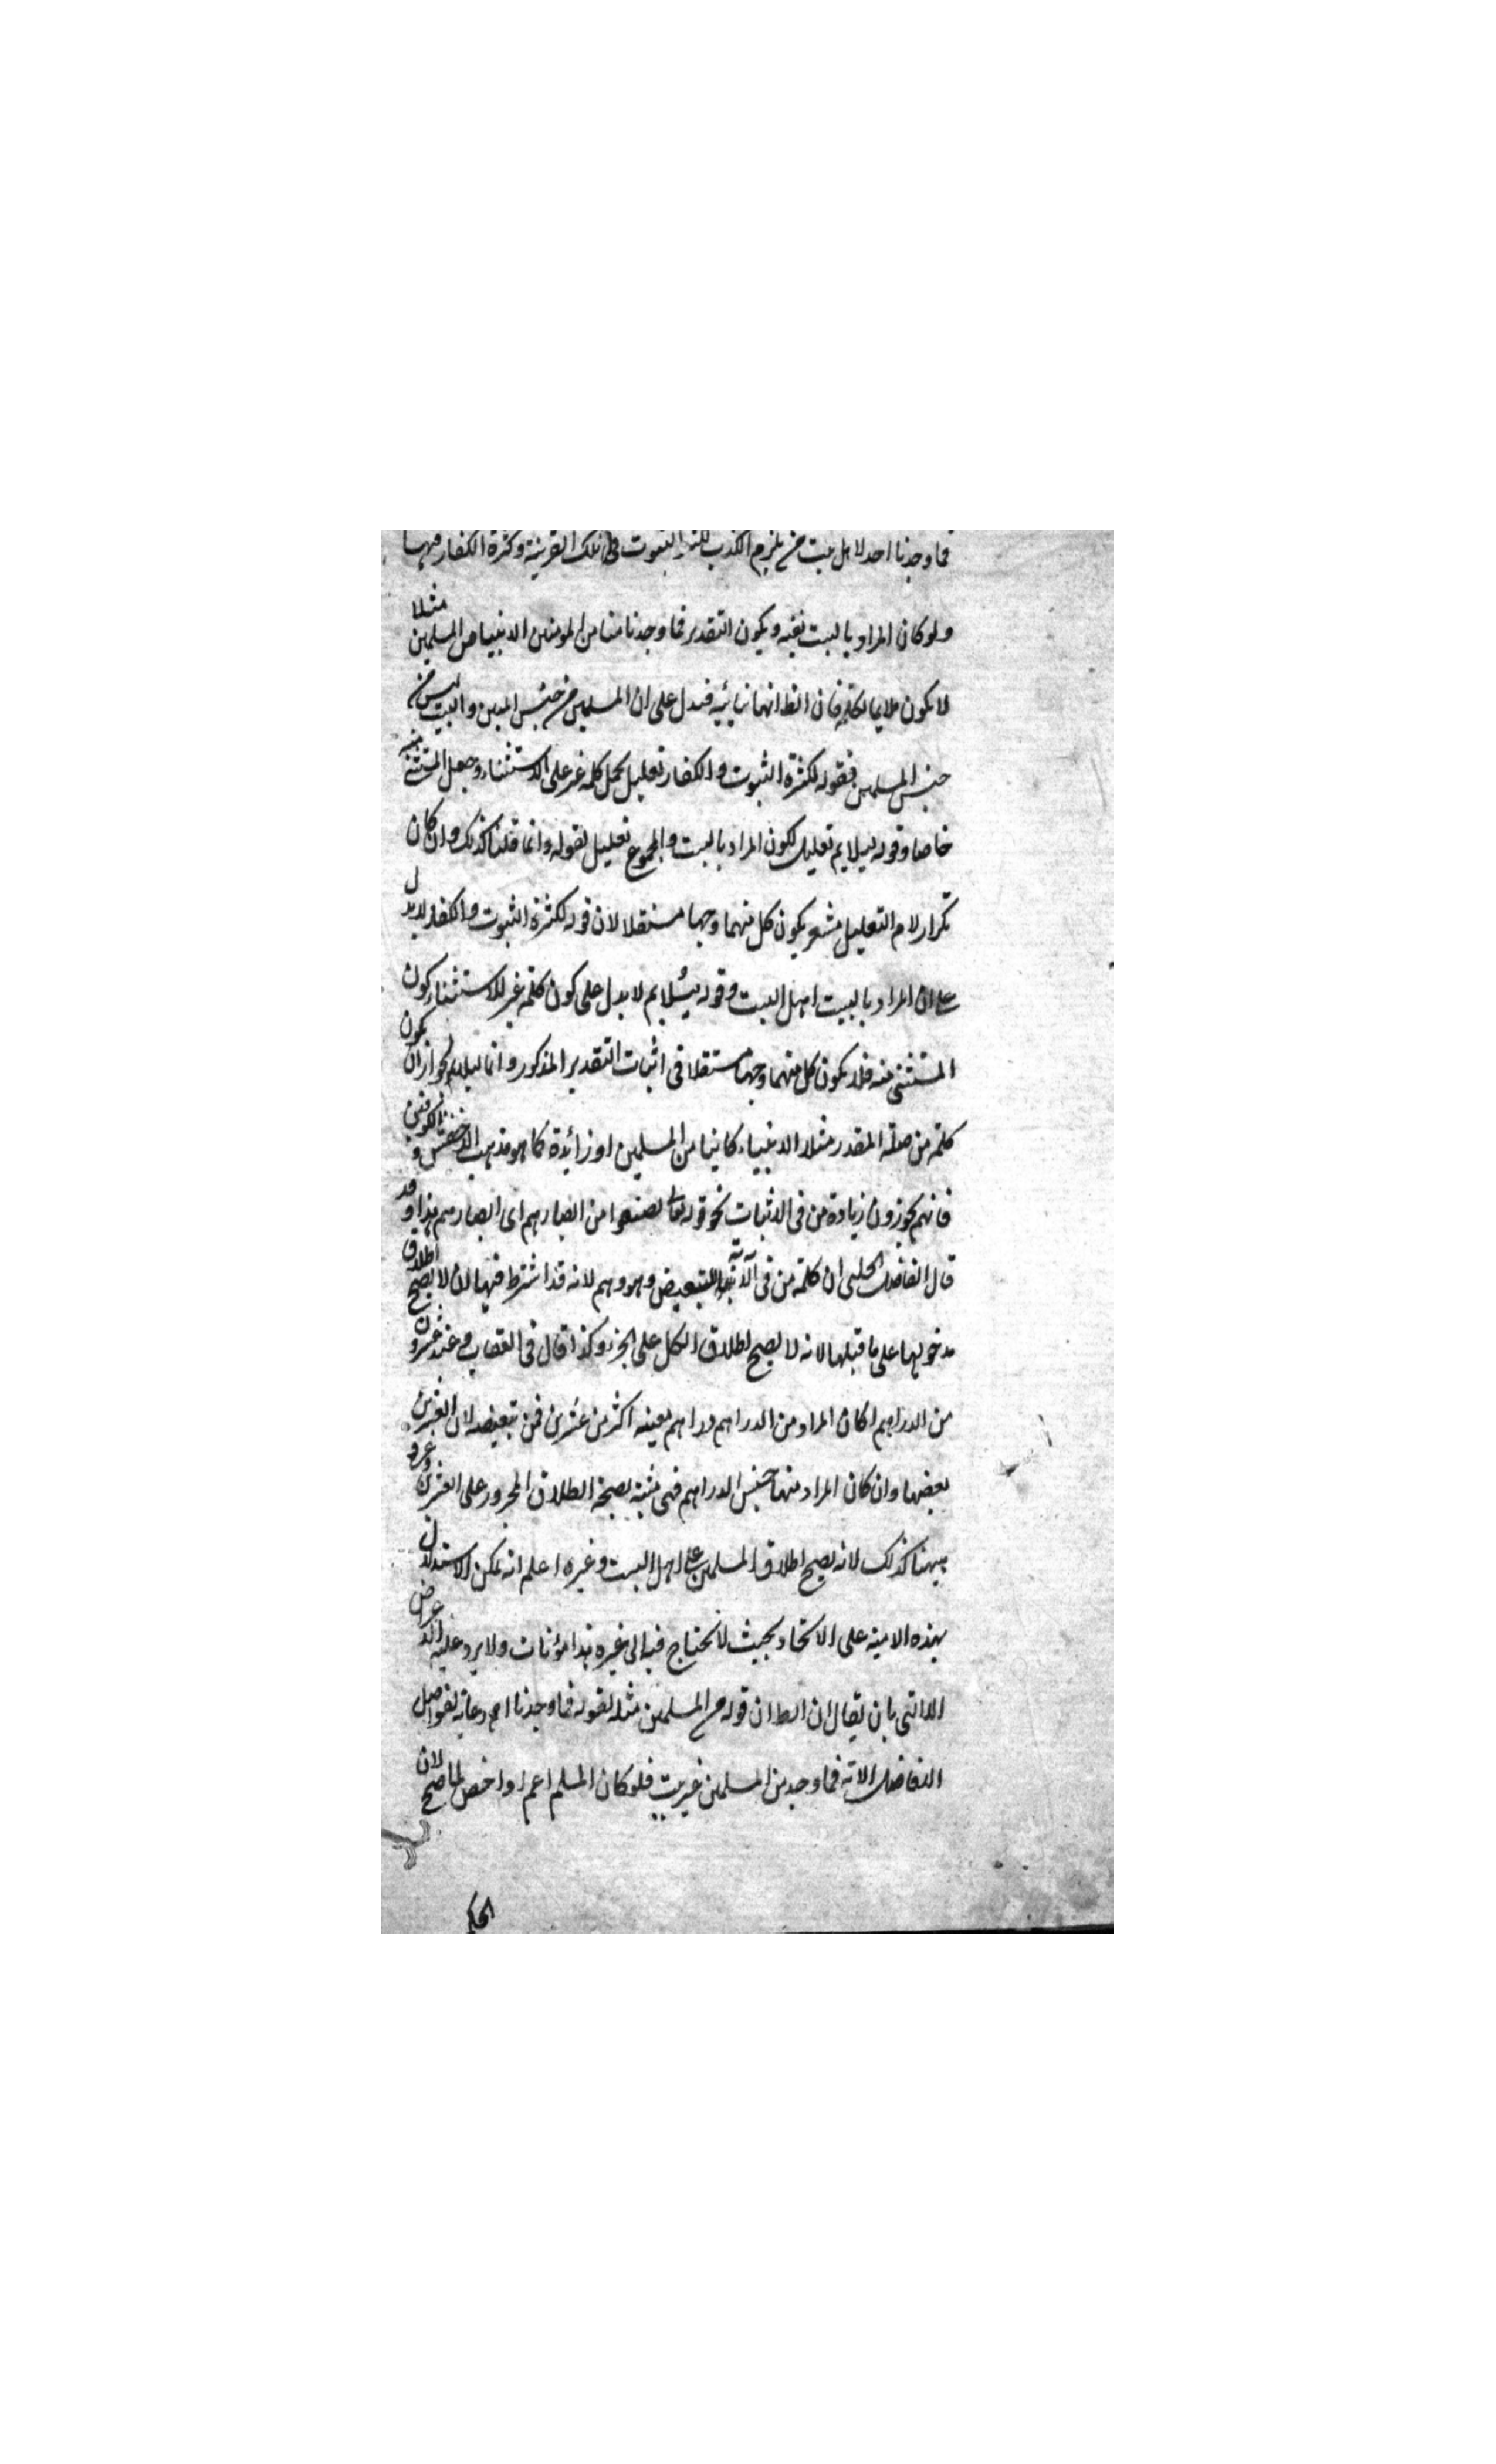 فما وجدنا احدا لا اهل بيت فح يلزم الكذب لكثرة البيوت فى تلك القرية وكثرة الكفار فيها
ولو كان المراد بالبيت نفيه ويكون التقدير فما وجدنا منا من المؤمنين الا بيتا من المسلمين مثلا
لا يكون ملايما لكلمة فان الظ انها بيانية فيدل على ان المسلمين من جنس المبين والبيت ليس من
جنس المسلمين فقوله لكثرة البيوت والكفار تعليل لحمل كلمة غير على الاستثناء وجعل المستثنى منه
خاصا وقوله ليلايم تعليل لكون المراد بالبيت والمجموع تعليل لقوله وانما قلنا كذلك وان كان
تكرار لام التعليل مشعر بكون كل منهما وجها مستقلا لان قوله لكثرة البيوت والكفار لا يدل
على ان المراد بالبيت اهل البيت وقوله ليلايم لا يدل على كون كلمة غير للاستثناء وكون
المستثنى منه فلا يكون كل منهما وجها مستقلا فى اثبات التقدير المذكور وانما ليلايم لجواز ان يكون
كلمة من صلة المقدر مثلا الا بيتا كاينا من المسلمين او زائدة كما هو مذهب الاخفش والكوفيين
فانهم يجوزون زيادة من فى الاثبات نحو قوله تعالى يغضوا من ابصارهم اى ابصارهم هذا وقد
قال الفاضل الجلبى ان كلمة من فى الآية للتبعيض وهو وهم لانه قد اشترط فيها ان لا يصح اطلاق
مدخولها على ما قبلها لانه لا يصح اطلاق الكل على الجزء وكذا قال فى العصاب عند عشرون
من الدراهم ان كان المراد من الدراهم دراهم معينة اكثر من عشرين فمن تبعيضه لان العشرين
بعضها وان كان المراد منها جنس الدراهم فهى مبينة لصحة اطلاق المجرور على العشرين
ههنا كذلك لانه يصح اطلاق المسلمين على اهل البيت وغيره اعلم انه يمكن الاستدلال
بهذه الاية على الاتحاد بحيث لا يحتاج فيه الى غيره ولا يرد عليه الاعتراض
الاتى بان يقال ان الظ ان قوله من المسلمين مثله لقوله فما وجدنا رعاية لفواصل
الفاضل الاية فما وجد من المسلمين غير بيت فلو كان المسلم اعم او اخص لما صح لان